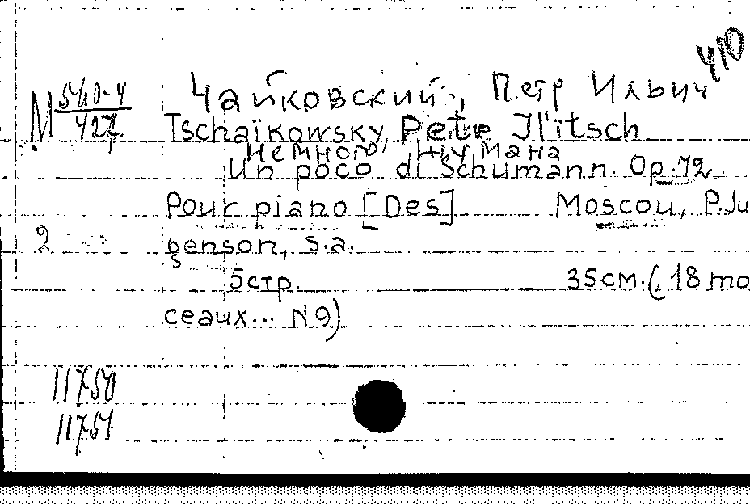 410
Чайковский, Петр Ильич
М 540-4
427
Tschaïkowsky, Petr Il'itsch
Немного Шумана
Un poco di Schumann. Op. 72
Pour piano [Des] Moscou, P. Ju
2 genson, s.a.
5 стр. 35 см. (18 mo
ceaux... N 9)
11750
11751